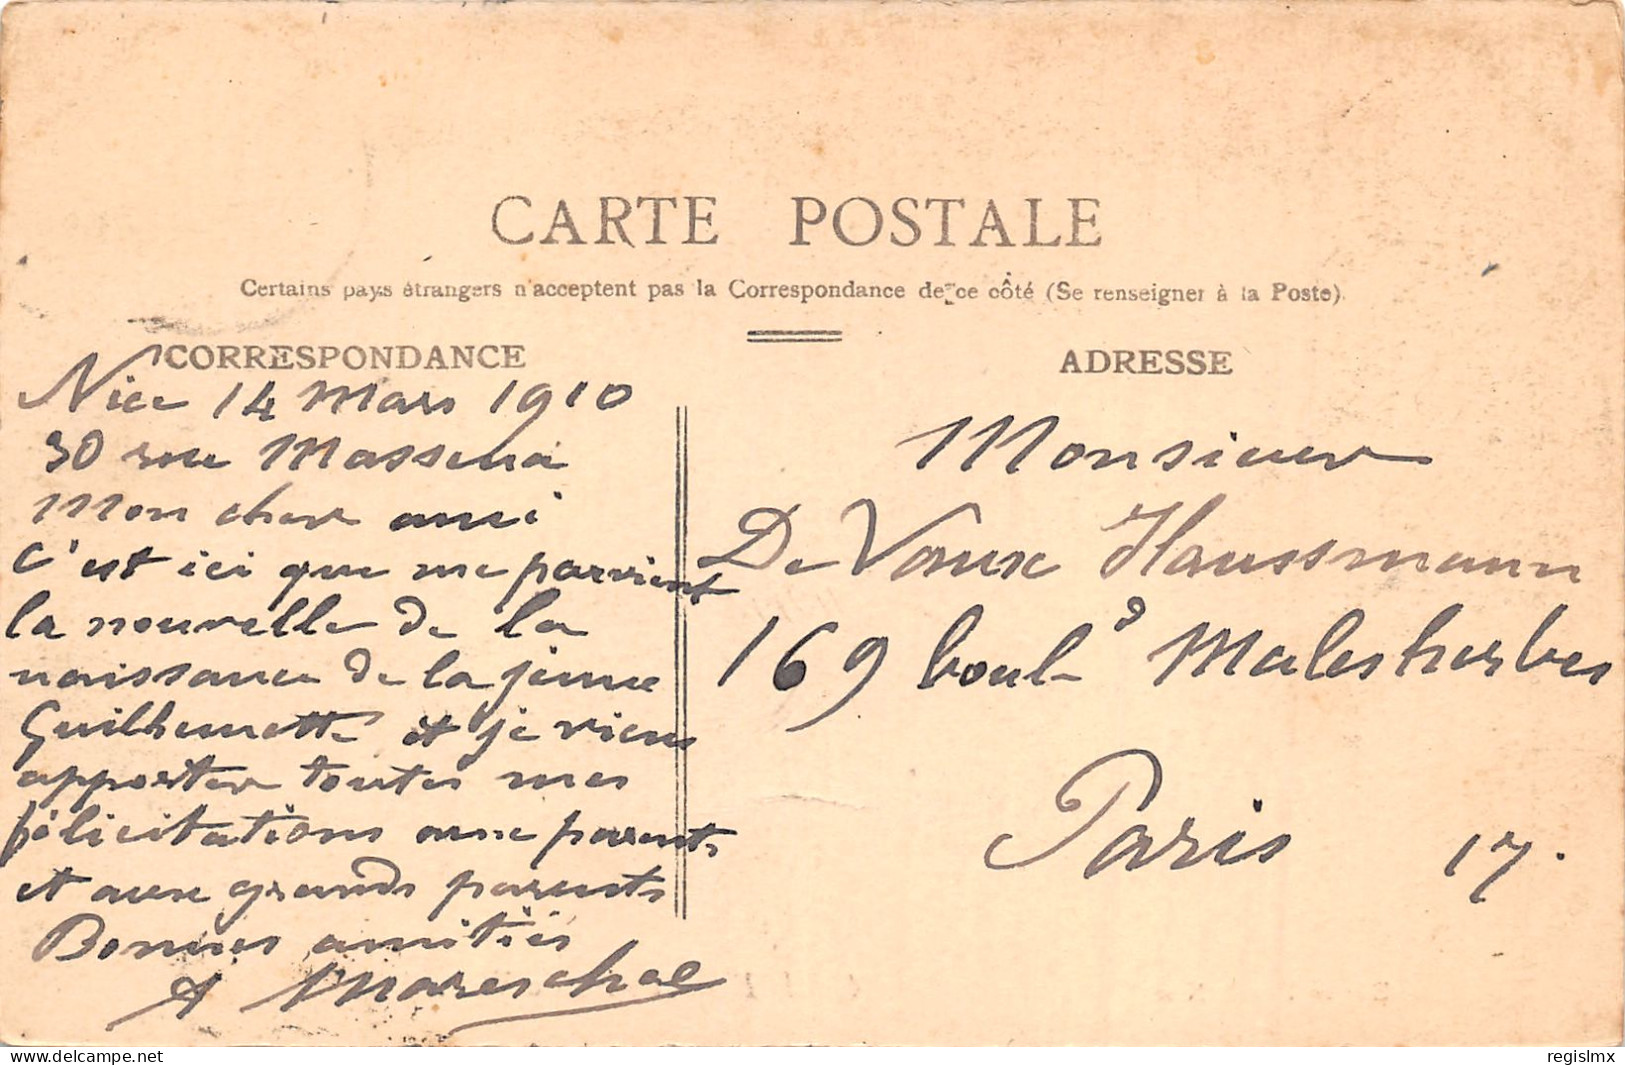 CARTE POSTALE
Certains pays étrangers n'acceptent pas la Correspondance de ce côté (Se renseigner à la Poste).
CORRESPONDANCE
Nice 14 Mars 1910
30 rue Masséna
Mon cher ami
C'est ici que me parvient
la nouvelle de la
naissance de la jeune
Guilhemette et je viens
apporter toutes mes
félicitations aux parents
et aux grands parents
Bonnes amitiés
A Mareschal
ADRESSE
Monsieur
De Vaux Haussmann
169 boul d Malesherbes
Paris 17.
www.delcampe.net
regislmx